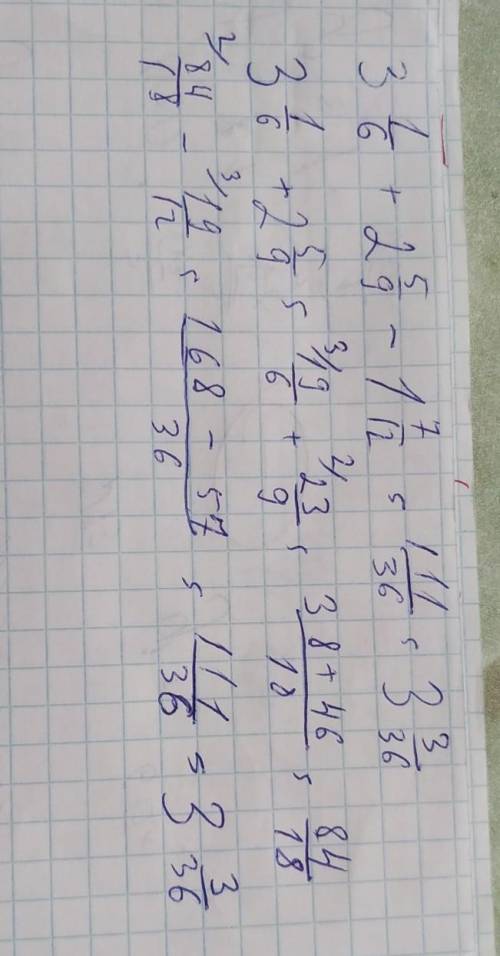 3 1/6 + 2 5/9 - 1 7/12 = 111/36 = 3 3/36
3 1/6 + 2 5/9 = ³⁄ 19/6 + ²⁄ 23/9 = (38 + 46)/18 = 84/18
²⁄ 84/18 - ³⁄ 19/12 = (168 - 57)/36 = 111/36 = 3 3/36